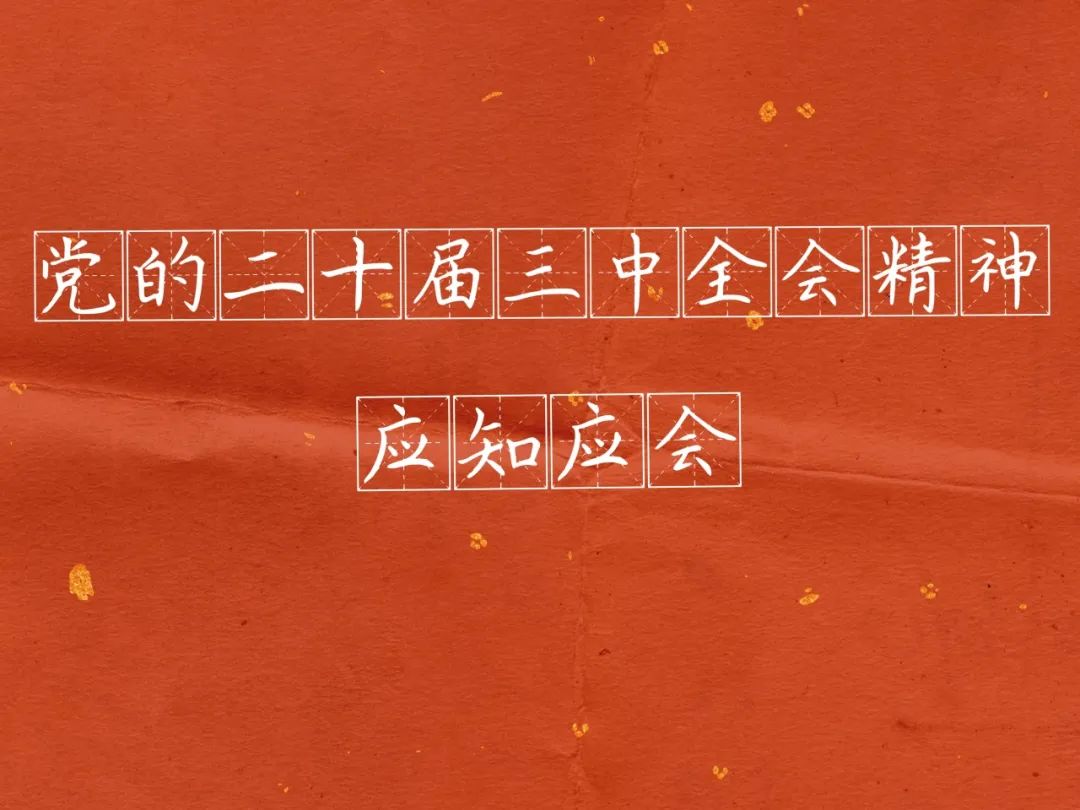 党的二十届三中全会精神
应知应会